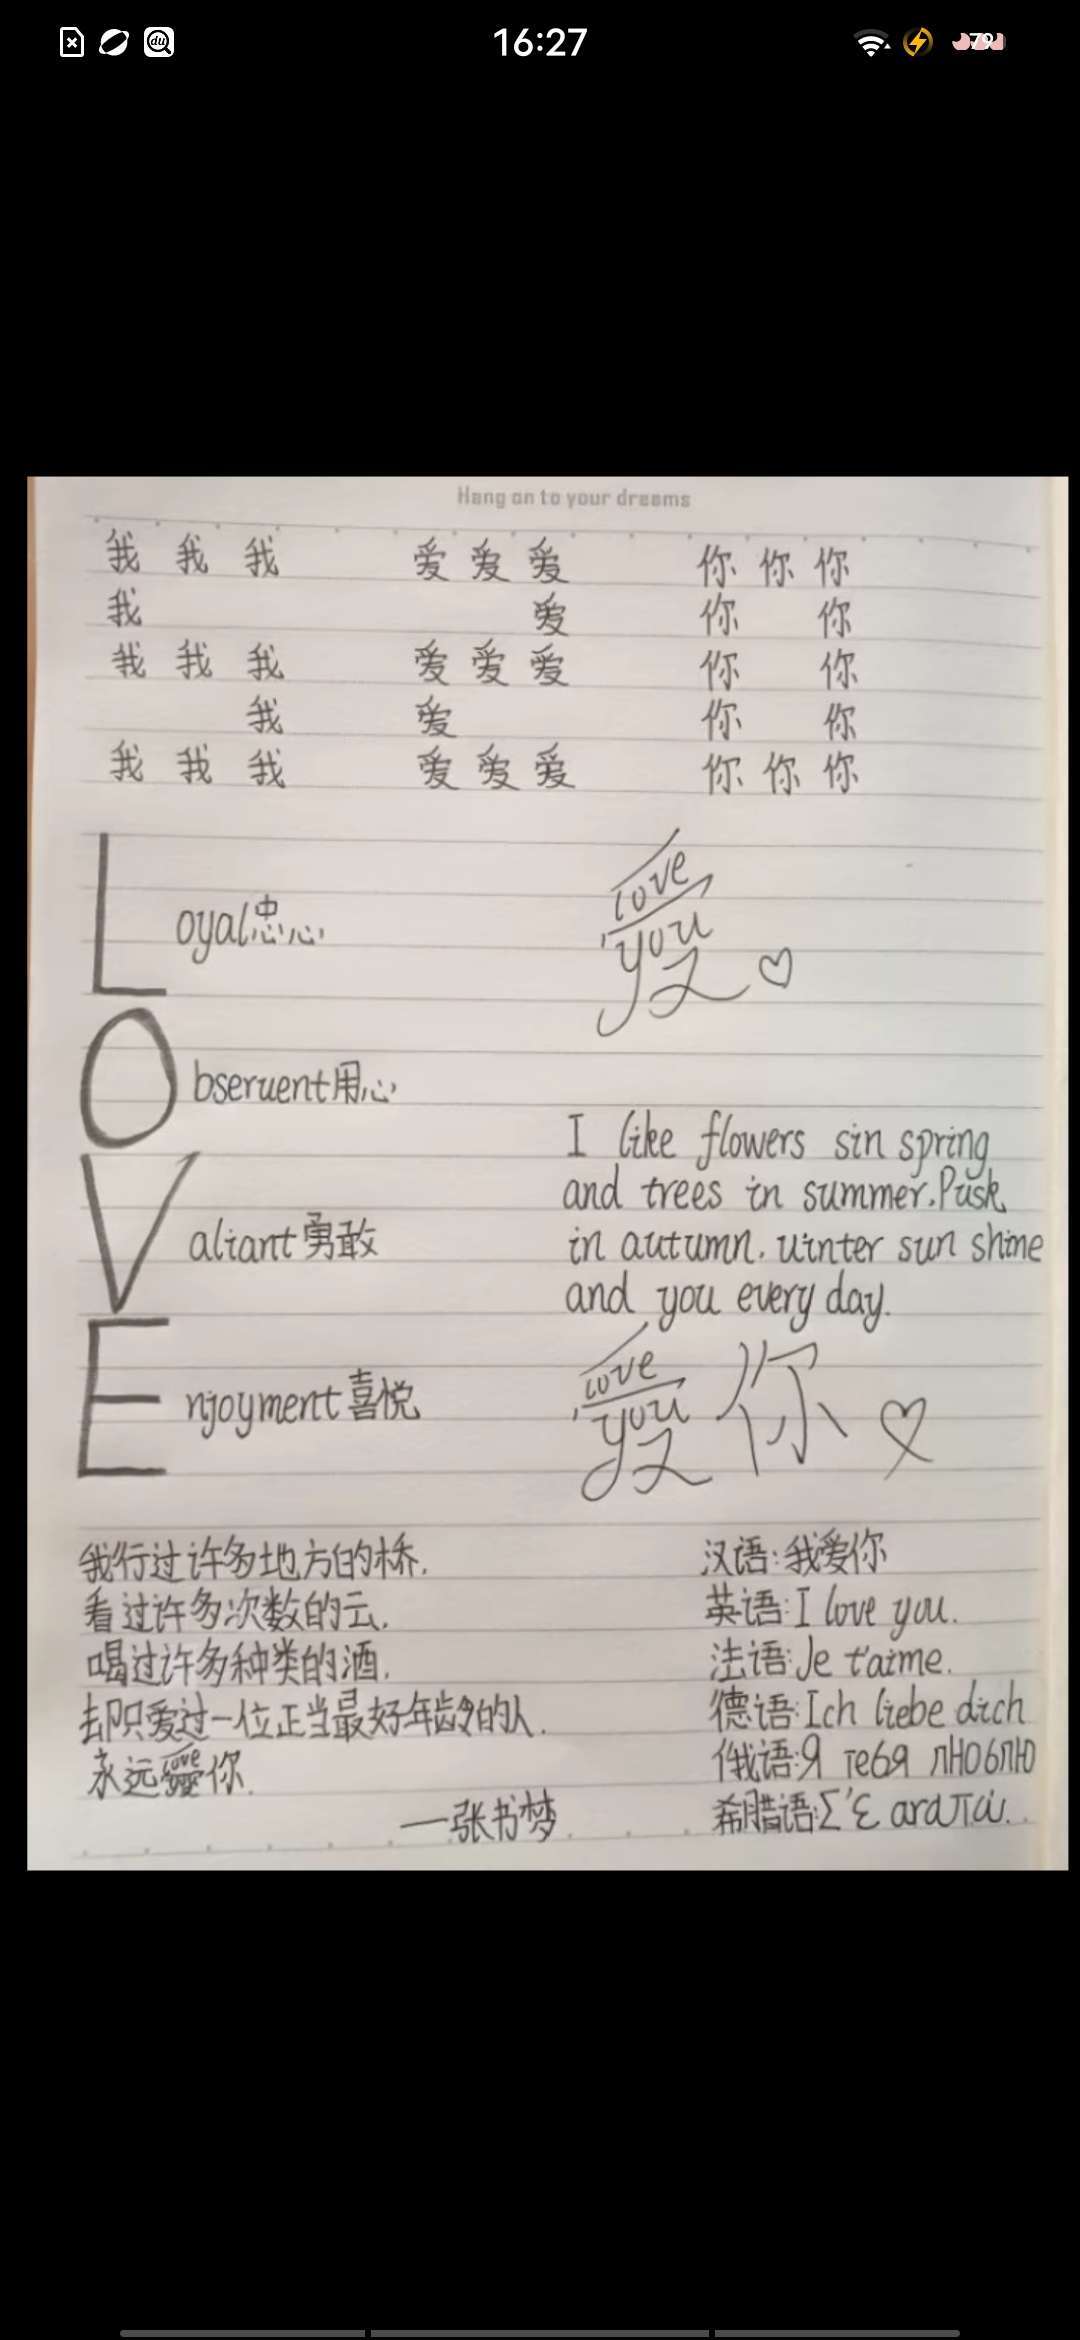 16:27
79
Hang on to your dreams
我 我 我 爱 爱 爱 你 你 你
我 爱 你 你
我 我 我 爱 爱 爱 你 你
我 爱 你 你
我 我 我 爱 爱 爱 你 你 你
Loyal忠心
love
you
Observent用心
Valiant勇敢
Enjoyment喜悦
I like flowers sin spring
and trees in summer.Pusk
in autumn.winter sun shine
and you every day.
love
you 你
我行过许多地方的桥.
看过许多次数的云.
喝过许多种类的酒.
却只爱过一位正当最好年龄的人.
永远爱你.
—张书梦
汉语:我爱你
英语:I love you.
法语:Je t'aime.
德语:Ich liebe dich
俄语:Я тебя лНОблЮ
希腊语:Σ'ε